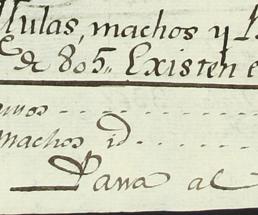 Mulas, machos y
de 805,, Existen e
machos id
Para al